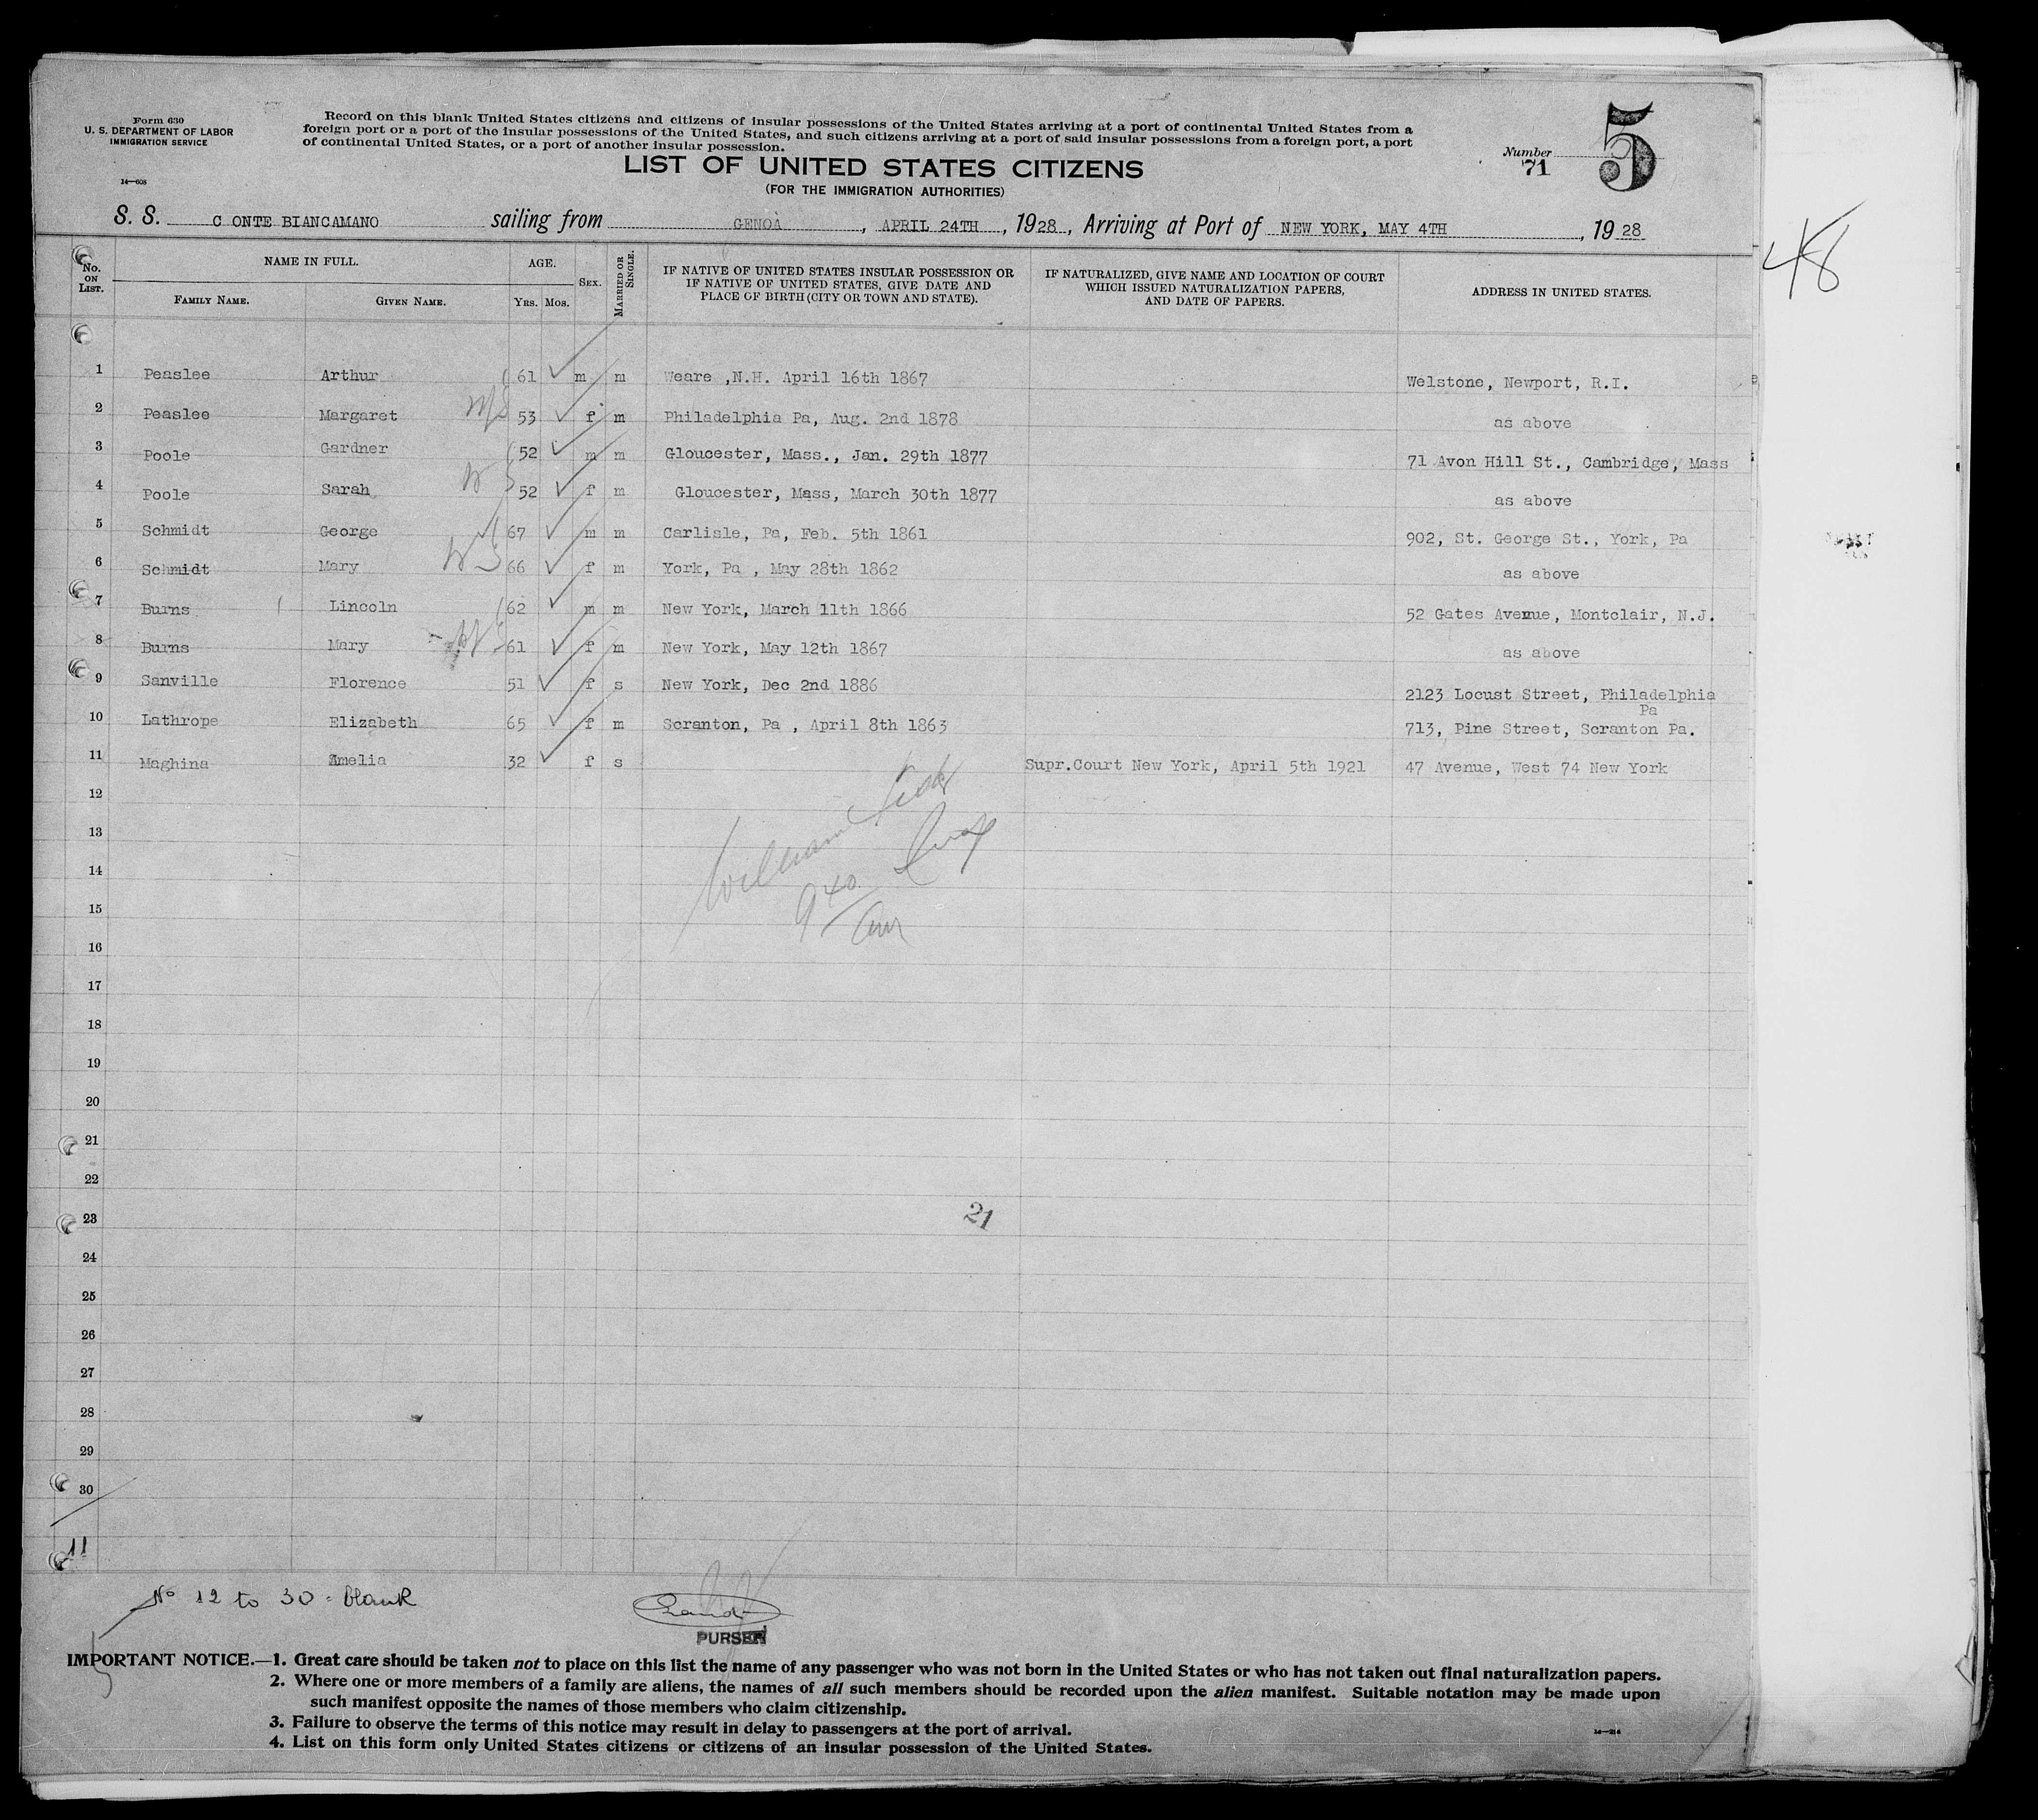 Form 630
U. S. DEPARTMENT OF LABOR
IMMIGRATION SERVICE
14—608
Record on this blank United States citizens and citizens of insular possessions of the United States arriving at a port of continental United States from a
foreign port or a port of the insular possessions of the United States, and such citizens arriving at a port of said insular possessions from a foreign port, a port
of continental United States, or a port of another insular possession.
LIST OF UNITED STATES CITIZENS
(FOR THE IMMIGRATION AUTHORITIES)
Number 71
5
48
S. S. C ONTE BIANCAMANO sailing from GENOA, APRIL 24TH, 1928, Arriving at Port of NEW YORK, MAY 4TH, 1928
No. ON LIST.
NAME IN FULL.
FAMILY NAME.
GIVEN NAME.
AGE.
YRS. MOS.
SEX.
MARRIED OR SINGLE.
IF NATIVE OF UNITED STATES INSULAR POSSESSION OR
IF NATIVE OF UNITED STATES, GIVE DATE AND
PLACE OF BIRTH (CITY OR TOWN AND STATE).
IF NATURALIZED, GIVE NAME AND LOCATION OF COURT
WHICH ISSUED NATURALIZATION PAPERS,
AND DATE OF PAPERS.
ADDRESS IN UNITED STATES.
1 Peaslee Arthur 61 m m Weare ,N.H. April 16th 1867 Welstone, Newport, R.I.
2 Peaslee Margaret 53 f m Philadelphia Pa, Aug. 2nd 1878 as above
3 Poole Gardner 52 m m Gloucester, Mass., Jan. 29th 1877 71 Avon Hill St., Cambridge, Mass
4 Poole Sarah 52 f m Gloucester, Mass, March 30th 1877 as above
5 Schmidt George 67 m m Carlisle, Pa, Feb. 5th 1861 902, St. George St., York, Pa
6 Schmidt Mary 66 f m York, Pa , May 28th 1862 as above
7 Burns Lincoln 62 m m New York, March 11th 1866 52 Gates Avenue, Montclair, N.J.
8 Burns Mary 61 f m New York, May 12th 1867 as above
9 Sanville Florence 51 f s New York, Dec 2nd 1886 2123 Locust Street, Philadelphia
Pa
10 Lathrope Elizabeth 65 f m Scranton, Pa , April 8th 1863 713, Pine Street, Scranton Pa.
11 Maghina Amelia 32 f s Supr.Court New York, April 5th 1921 47 Avenue, West 74 New York
12
William
13
14
940
15
am
16
17
18
19
20
21
22
23
21
24
25
26
27
28
29
30
11
No 12 to 30 = blank
PURSER
IMPORTANT NOTICE.—1. Great care should be taken not to place on this list the name of any passenger who was not born in the United States or who has not taken out final naturalization papers.
2. Where one or more members of a family are aliens, the names of all such members should be recorded upon the alien manifest. Suitable notation may be made upon
such manifest opposite the names of those members who claim citizenship.
3. Failure to observe the terms of this notice may result in delay to passengers at the port of arrival.
4. List on this form only United States citizens or citizens of an insular possession of the United States.
14—214